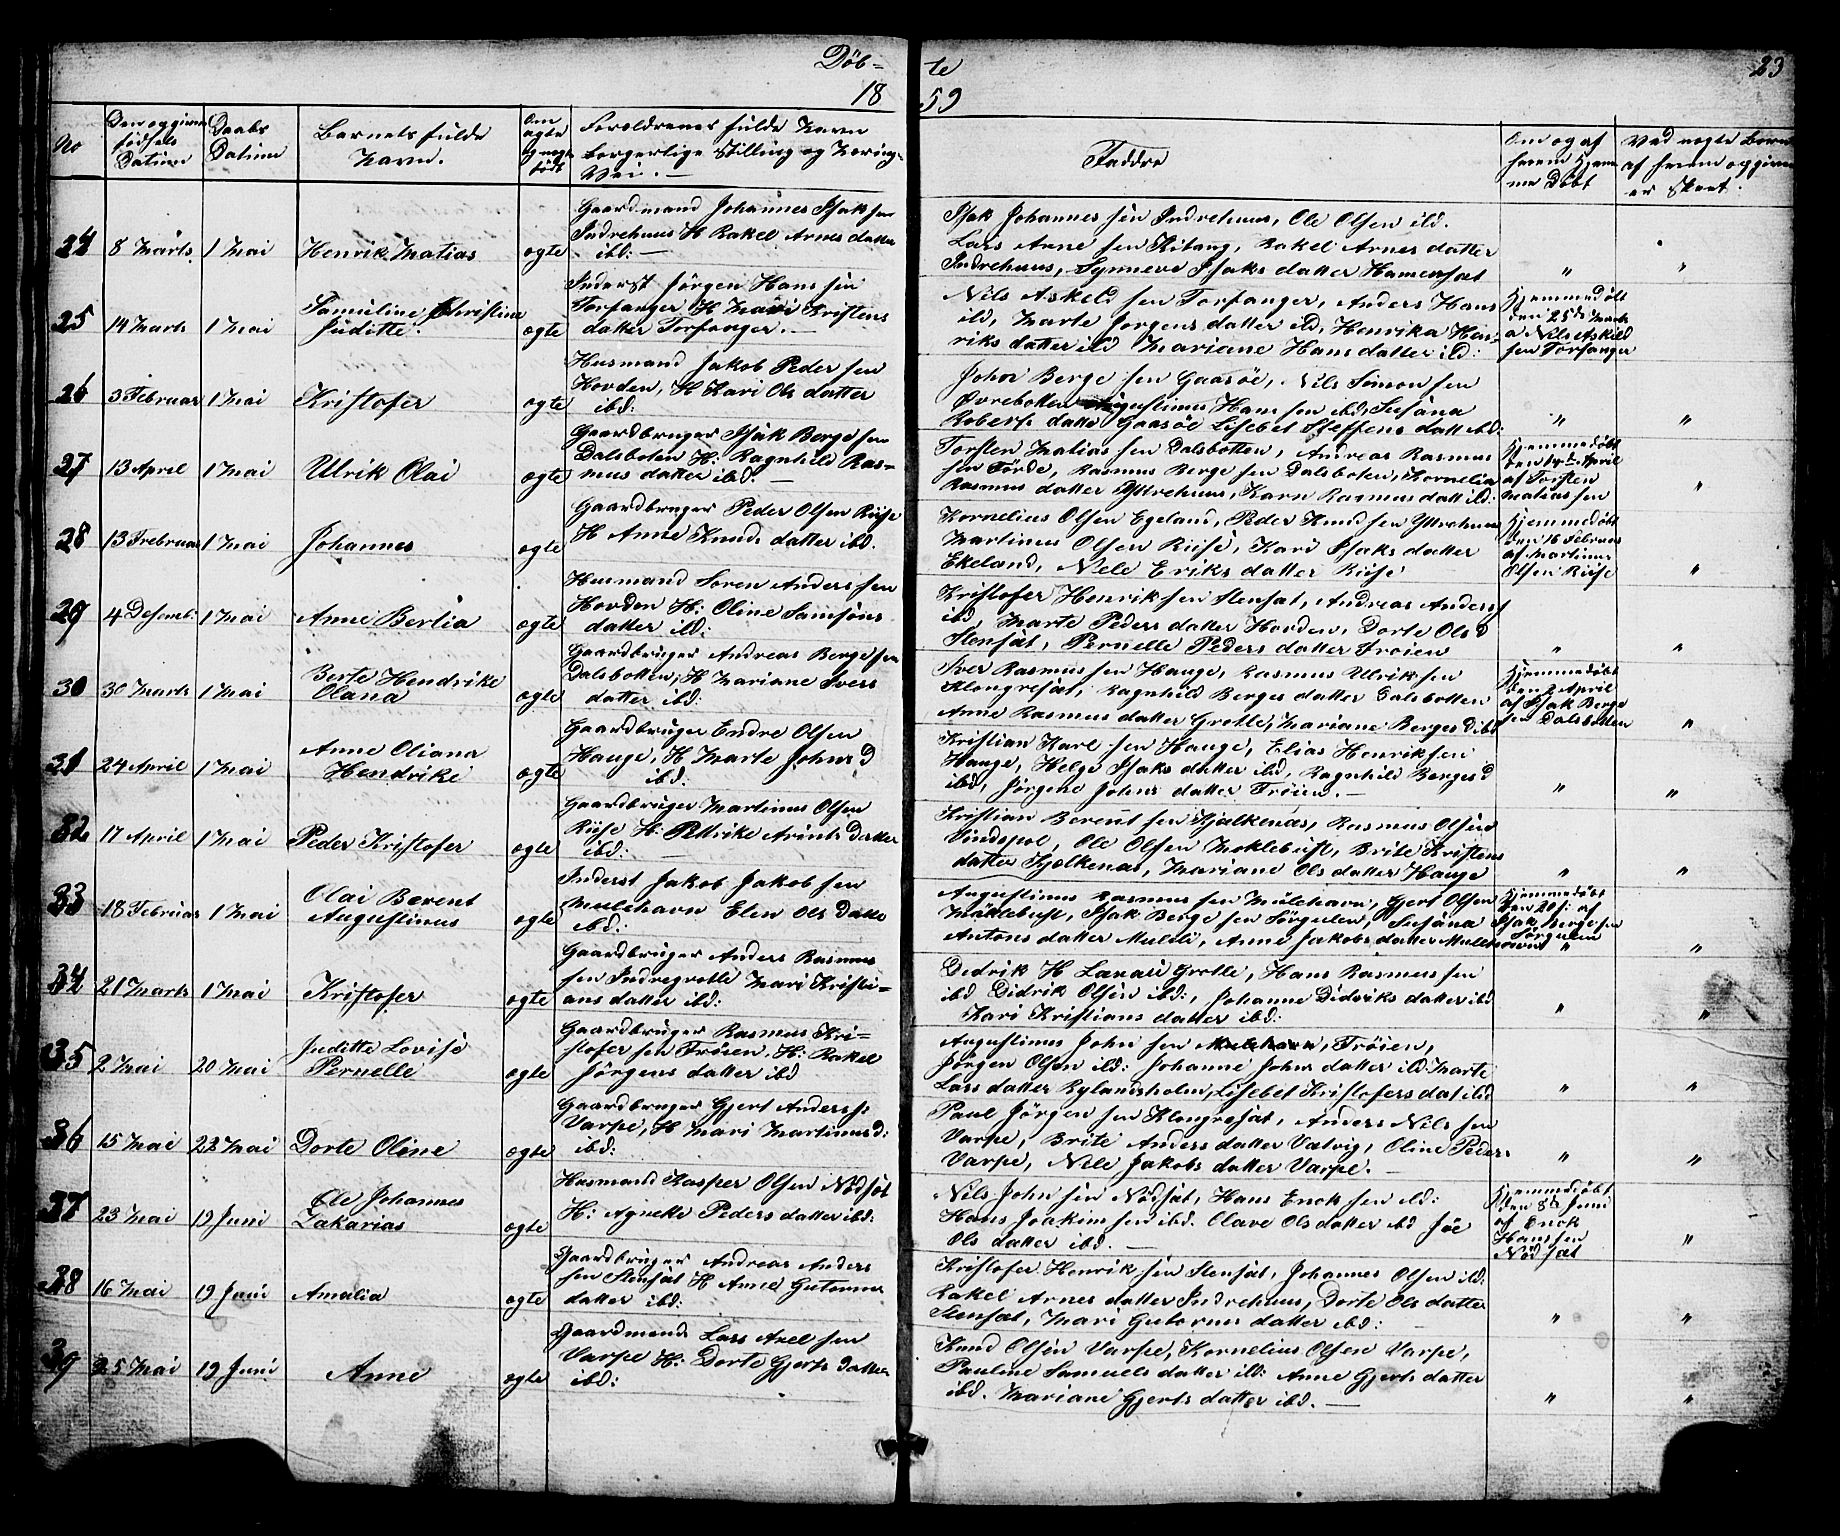 Döb=
te
23
18
59
No
Den opgivne
födsels
Datum
Daabs
Datum
Barnets fulde
Navn.
Om
ægte
og uægte
födt
Foreldrenes fulde Navn
borgerlige Stilling og Næring-
Vei. —
Faddre
Om og af
hvem Hjem
me Döbt
Ved uægte Börn
af hvem opgivne
er Skeet.
24 8 Marts 1 Mai Henrik Matias ogte
Gaardmand Johannes Isaksen
Indrehuus H Rakel Arnes datter
ibd: —
Isak Johannes sen Indrehuus, Ole Olsen ibd.
Lars Arne sen, Rakel Arnes datter
Indrehuus, Synneve Isaks datter Hamensæt " "
25 14 Marts 1 Mai Samuline Christine
Juditte. ogte
Inderst Jörgen Hans sen
Torfanger H Mari Kristens
datter Torfanger. —
Nils Askild sen Torfanger, Anders Hans
ibd, Marte Jorgens datter ibd, Henrika Hen-
riks datter ibd Mariane Hans datter ibd:
Hjemmedöbt
den 25de Marts
a Nils Askild
sen Torfanger
26 3 Februar 1 Mai Kristofer ogte
Husmand Jakob Peder sen
Hovden, H Kari Ols datter
ibd:
John Berge sen Gaasöe, Nils Simon sen
Övrebotten Augustinus Hans sen ibd, Susana
Roberts datte Gaasöe Lisebet Steffens datt ibd: " "
27 13 April 1 Mai Ulrik Olai ogte
Gaardbruger Isak Berge sen
Dalsboten H: Ragnhild Ras-
mus datter ibd. —
Torsten Matias sen Dalsbotten, Andreas Rasmus
sen Förde, Rasmus Berge sen Dalsboten, Kornelia
Rasmus datter Yttrehuus, Karn Rasmus datt ibd:
Hjemmedöbt
den 14de April
af Torsten
Matias sen "
28 13 Frebruar 1 Mai Johannes ogte
Gaardbruger Peder Olsen Riise
H Anne Knuds datter ibd.
Kornelius Olsen Egeland, Peder Knud sen Yttrehuus
Martinus Olsen Riise, Kari Isaks datter
Ekeland, Nele Eriks datter Riise
Hjemmedöbt
den 16 Februar
af Martinus
Olsen Riise "
29 4 Desemb. 1 Mai Anne Bertia ogte
Husmand Soren Anders sen
Hovden H: Oline Samsöns
datter ibd:
Kristofer Henrik sen Stensæt, Andreas Anders
ibd, Marte Peders datter Hovden, Dorte Ols d
Stensæt, Pernelle Peders datter Froien " "
30 30 Marts 1 Mai Berte Hendrike
Olana ogte
Gaardbruger Andreas Berge sen
Dalsbotten, H Mariane Ivers
datter ibd:
Iver Rasmus sen Hauge, Rasmus Ulrik sen
Klongresæt, Ragnhild Berges datter Dalsbotten
Anne Rasmus datter Grotle, Mariane Berges d ibd
Hjemmedöbt
den 2 April
af Isak Berge
sen Dalsbotten "
31 24 April 1 Mai Anne Oliana
Hendrike ogte
Gaardbruger Endre Olsen
Hauge, H Marte Johns d
ibd:
Kristian Karl sen Hauge, Elias Henriksen
Hauge, Helge Isaks datter ibd, Ragnhild Berges d
ibd, Jörgine Johns datter Fröien. — " "
32 17 April 1 Mai Peder Kristofer ogte
Gaardbruger Martinus Olsen
Riise H: Pettrike Arints datter
ibd: —
Kristian Berent sen Hjalkenæs, Rasmus Olsen
Vindspol, Ole Olsen Moklebust, Brite Kristens
datter Hjelkenæs, Mariane Ols datter Hauge " "
33 18 Februar 1 Mai Olai Berent
Augustinus ogte
Inderst Jakob Jakob sen
Mulehavn Elen Ols datte
ibd:
Augustinus Rasmus sen Mulehavn, Gjert Olsen
Mäklebust, Isak Berge sen Sörgulen, Susana
Antons datter Muleli, Anne Jakobs datter Mulehavn
Hjemmedöbt
den 20: af
Isak Bergesen
Sörgulen " "
34 21 Marts 1 Mai Kristofer ogte
Gaardbruger Anders Rasmus
sen Indregrotle Mari Kristi-
ans datter ibd:
Didrik H Lanari Grotle, Hans Rasmus sen
ibd Didrik Olsen ibd:, Johanne Didriks datter ibd
Kari Kristians datter ibd: " "
35 2 Mai 20 Mai Juditte Lovise
Pernelle ogte
Gaardbruger Rasmus Kri-
stofer sen Fröien. H: Rakel
Jörgens datter ibd
Augustinus John sen Mulehavn, Fröien,
Jörgen Olsen ibd: Johanne Johns datter ibd. Marte
Lars datter Rylandsholm, Lisebet Kristofers dat ibd " "
36 15 Mai 22 Mai Dorte Oline ogte
Gaardbruger Gjert Anders s:
Varpe, H Mari Martinus d:
ibd:
Paul Jörgen sen Klongresæt, Anders Nils sen
Varpe, Brite Anders datter Vatvig, Oline Peders
Varpe, Nele Jakobs datter Varpe. — " "
37 23 Mai 19 Juni Ole Johannes
Zakarias ogte
Husmand Kasper Olsen Nödsæt
H: Agneke Peders datter ibd:
Nils John sen Nödsæt, Hans Enok sen ibd:
Hans Joakim sen ibd. Olave Ols datter ibd Jöe
Ols datter ibd. —
Hjemmedöbt
den 8de Juni
af Enok
Hans sen
Nödsæt "
38 16 Mai 19 Juni Amalia ogte
Gaardbruger Andreas Anders
sen Stensæt H Anne Gutorms
datter ibd:
Kristofer Henrik sen Stensæt, Johannes Olsen ibd.
Rakel Arnes datter Indrehuus, Dorte Ols datter
Stensæt, Mari Gutorms datter ibd: " "
39 25 Mai 19 Juni Anne ogte
Gaardmand Lars Axel sen
Varpe H: Dorte Gjerts datter
ibd:
Knud Olsen Varpe, Kornelius Olsen Varpe,
Pauline Samuels datter ibd: Anne Gjerts datter
ibd. Mariane Gjerts datter ibd. — " "